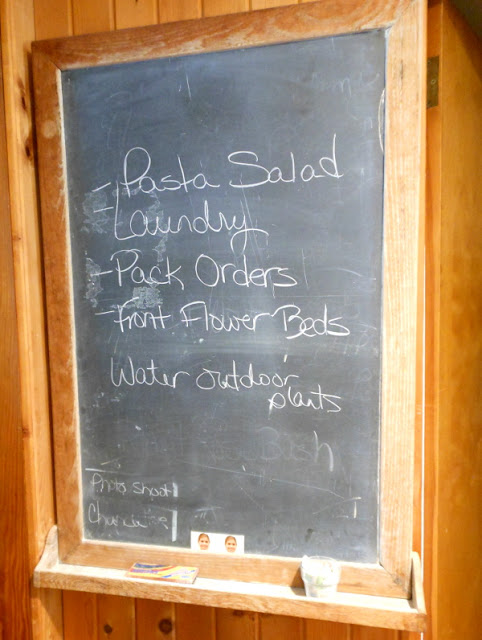 - Pasta Salad
- Laundry
- Pack Orders
- Front Flower Beds
Water outdoor
plants
Photo Shoot